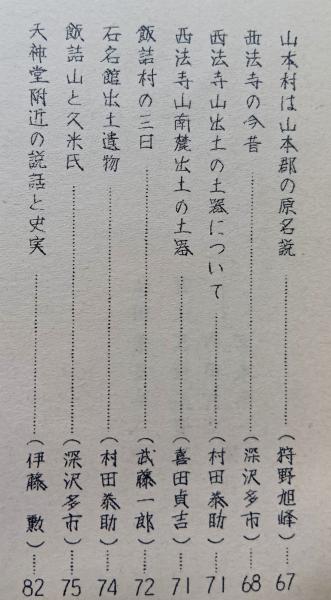 山本村は山本郡の原名説………(狩野旭峰)…67
西法寺の今昔………(深沢多市)…68
西法寺山出土の土器について………(村田泰助)…71
西法寺山南麓出土の土器………(喜田貞吉)…71
飯詰村の三日………(武藤一郎)…72
石名館出土遺物………(村田泰助)…74
飯詰山と久米氏………(深沢多市)…75
天神堂附近の説話と史実………(伊藤 勲)…82